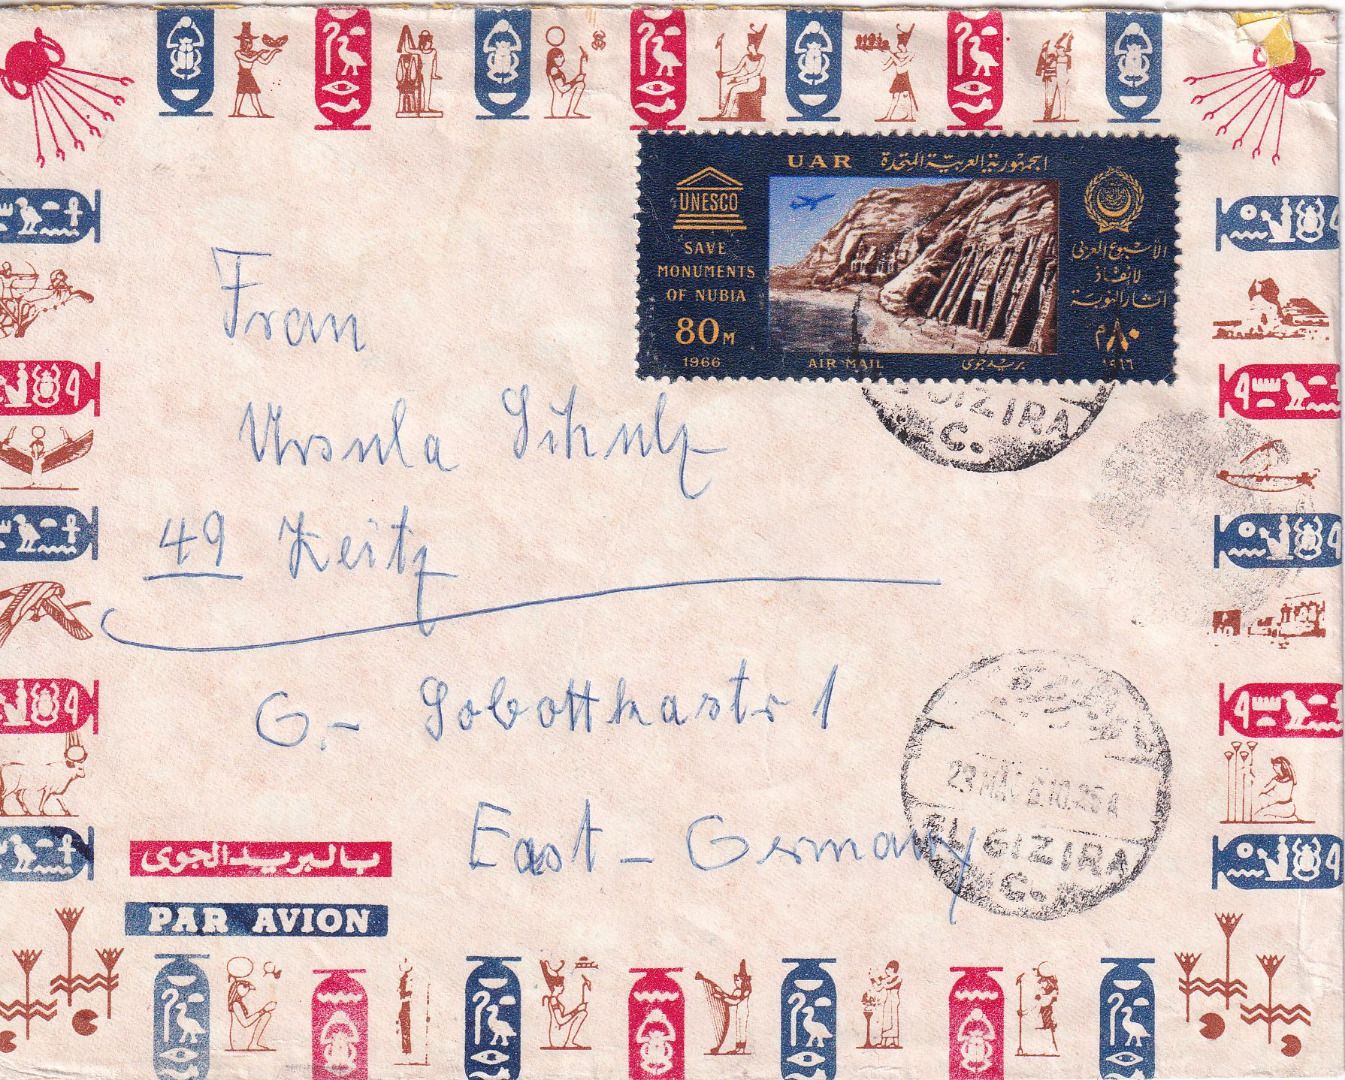 UAR الجمهورية العربية المتحدة
UNESCO
SAVE
MONUMENTS
OF NUBIA
80M
1966
AIR MAIL
بريد جوى
الأسبوع العربى
لإنقاذ
آثار النوبة
٨٠م
١٩٦٦
GIZIRA
C.
Frau
Ursula Schulz
49 Zeitz
G.- Sobottkastr 1
East - Germany
23 MA 10.25A
EL GIZIRA
C.
بالبريد الجوى
PAR AVION